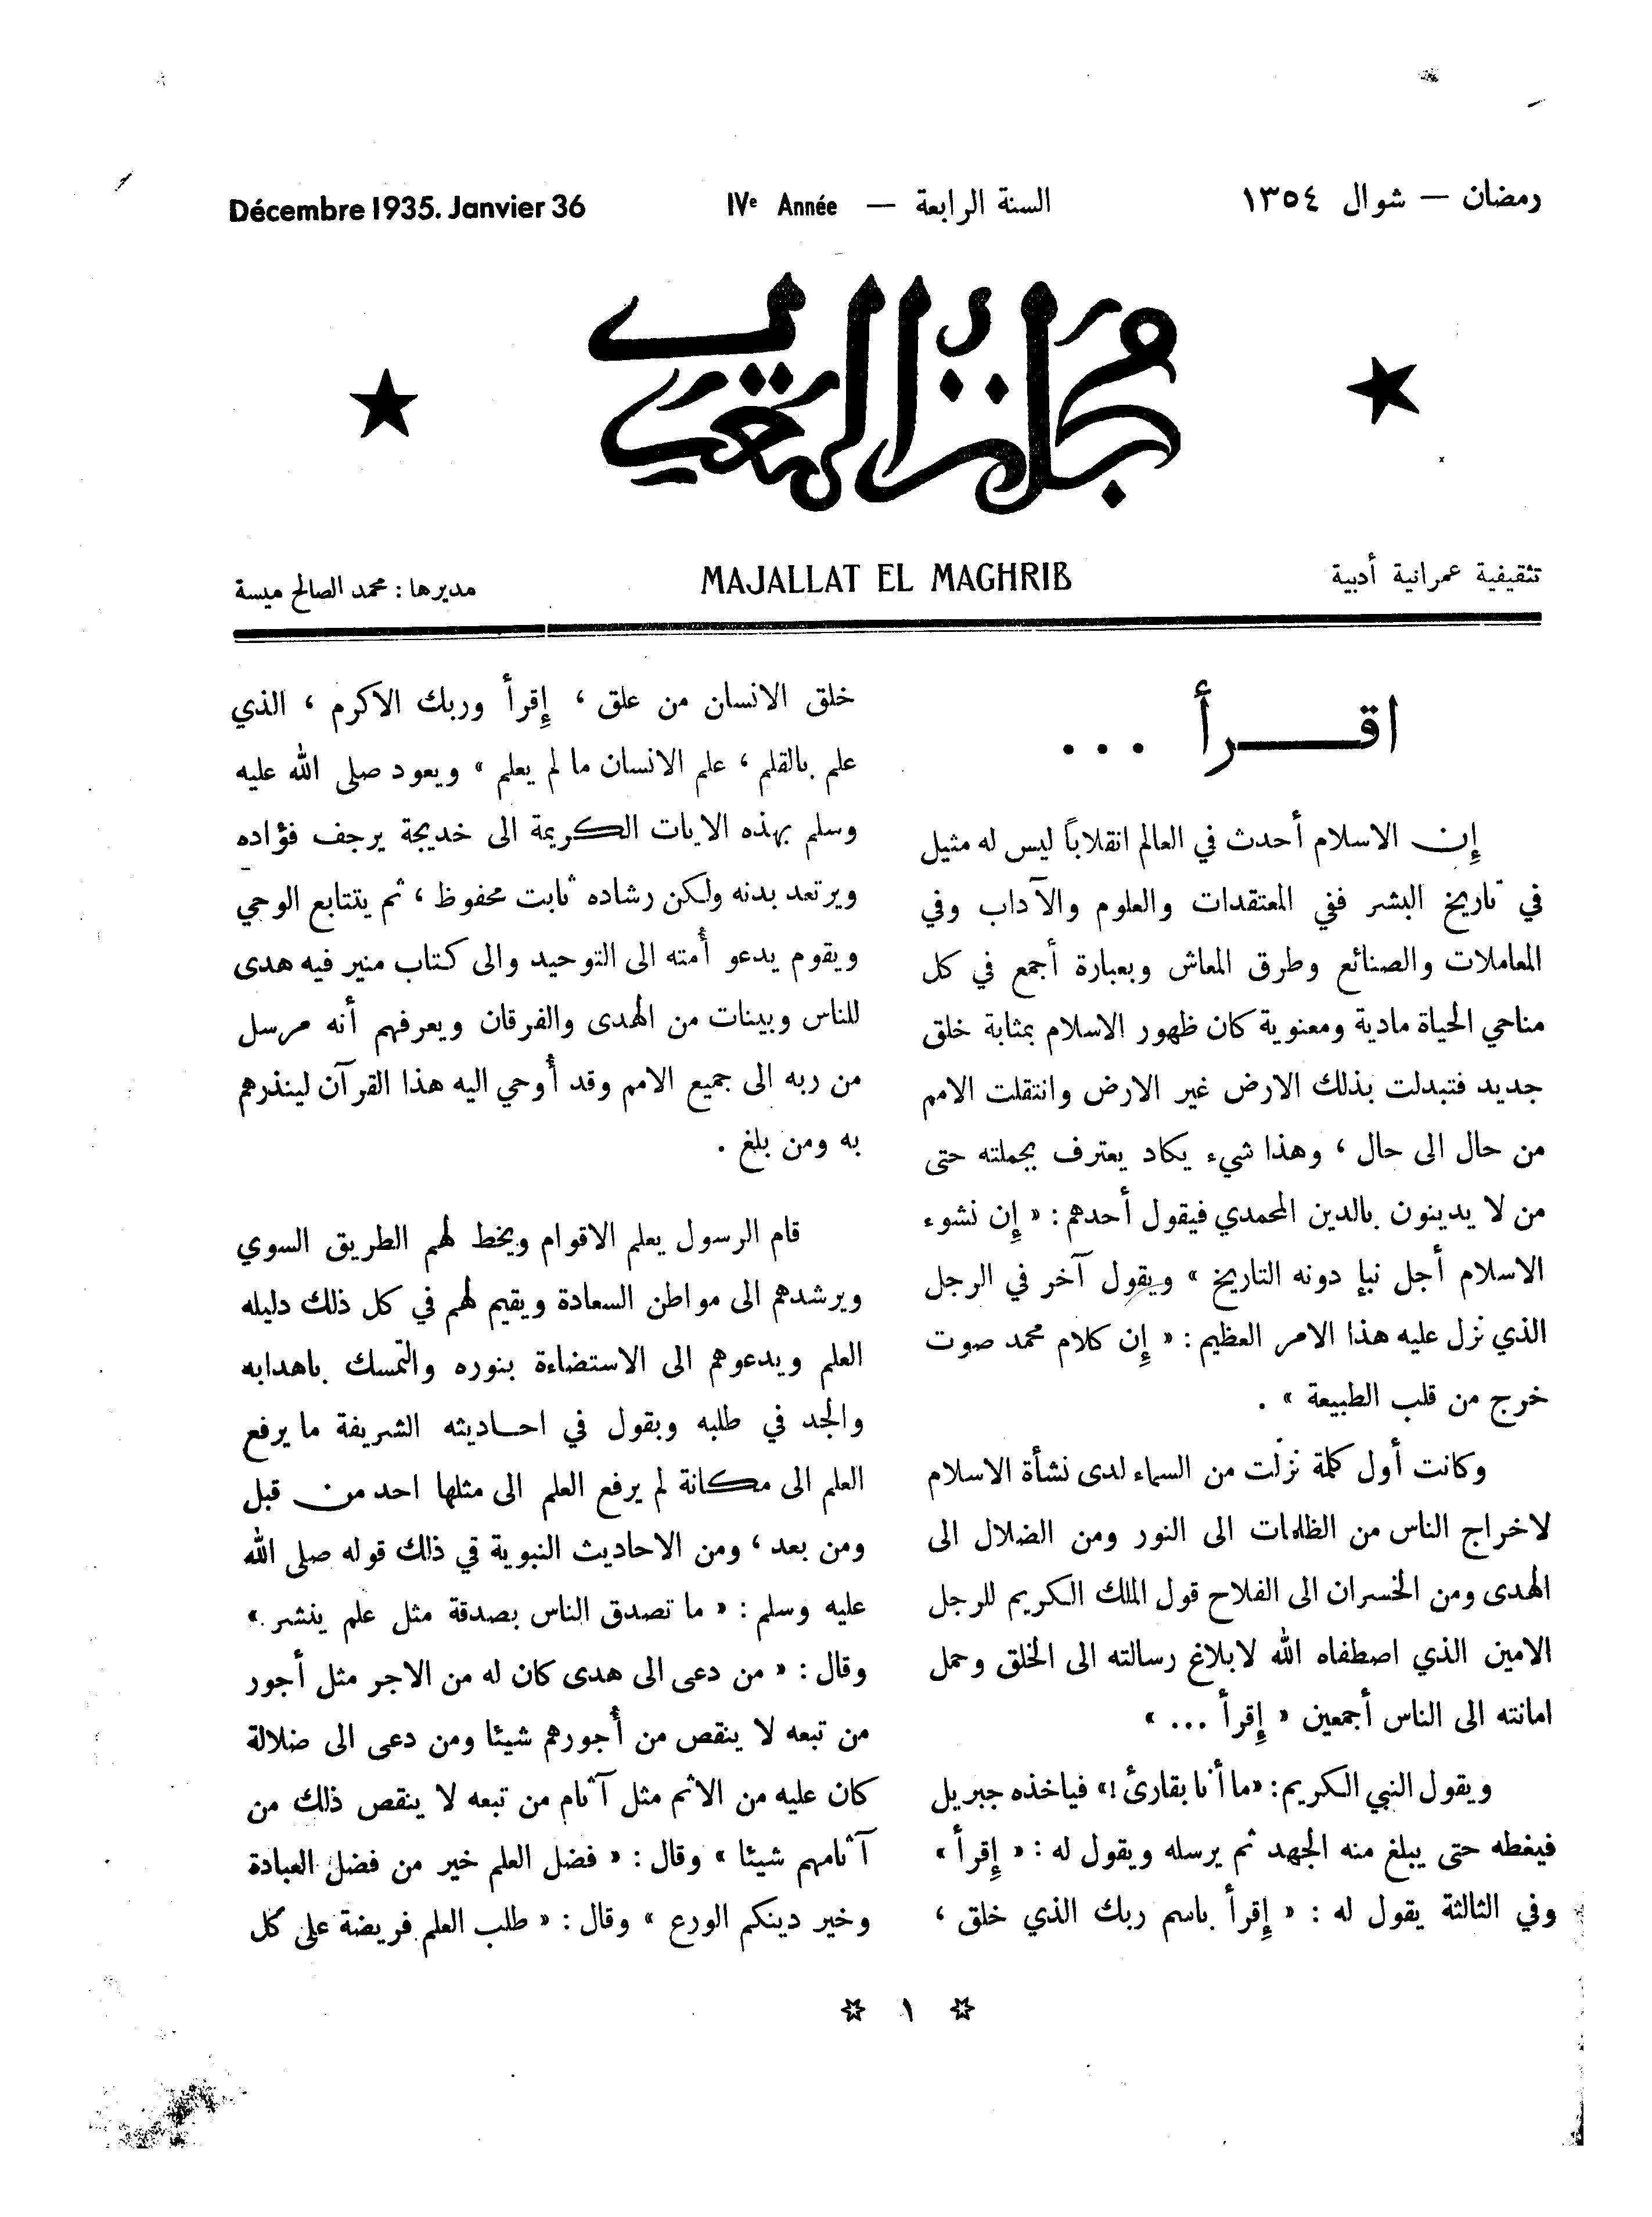 رمضان — شوال ١٣٥٤
السنة الرابعة — IVe Année
Décembre 1935. Janvier 36
مجلة المغرب
تثقيفية عمرانية أدبية
MAJALLAT EL MAGHRIB
مديرها : محمد الصالح ميسة
اقـــرأ ...
إن الاسلام أحدث في العالم انقلاباً ليس له مثيل
في تاريخ البشر ففي المعتقدات والعلوم والآداب وفي
المعاملات والصنائع وطرق المعاش وبعبارة أجمع في كل
مناحي الحياة مادية ومعنوية كان ظهور الاسلام بمثابة خلق
جديد فتبدلت بذلك الارض غير الارض وانتقلت الامم
من حال الى حال ، وهذا شيء يكاد يعترف بجملته حتى
من لا يدينون بالدين المحمدي فيقول أحدهم : « إن نشوء
الاسلام أجل نبإ دونه التاريخ » ويقول آخر في الرجل
الذي نزل عليه هذا الامر العظيم : « إن كلام محمد صوت
خرج من قلب الطبيعة » .
وكانت أول كلمة نزلت من السماء لدى نشأة الاسلام
لاخراج الناس من الظلمات الى النور ومن الضلال الى
الهدى ومن الخسران الى الفلاح قول الملك الكريم للرجل
الامين الذي اصطفاه الله لابلاغ رسالته الى الخلق وحمل
امانته الى الناس أجمعين « إقرأ ... »
ويقول النبي الكريم : «ما أنا بقارئ !» فياخذه جبريل
فيغطه حتى يبلغ منه الجهد ثم يرسله ويقول له : « إقرأ »
وفي الثالثة يقول له : « إقرأ باسم ربك الذي خلق ،
خلق الانسان من علق ، إقرأ وربك الاكرم ، الذي
علم بالقلم ، علم الانسان ما لم يعلم » ويعود صلى الله عليه
وسلم بهذه الايات الكريمة الى خديجة يرجف فؤاده
ويرتعد بدنه ولكن رشاده ثابت محفوظ ، ثم يتتابع الوحي
ويقوم يدعو أمته الى التوحيد والى كتاب منير فيه هدى
للناس وبينات من الهدى والفرقان ويعرفهم أنه مرسل
من ربه الى جميع الامم وقد أوحي اليه هذا القرآن لينذرهم
به ومن بلغ .
قام الرسول يعلم الاقوام ويخط لهم الطريق السوي
ويرشدهم الى مواطن السعادة ويقيم لهم في كل ذلك دليله
العلم ويدعوهم الى الاستضاءة بنوره والتمسك باهدابه
والجد في طلبه وبقول في احـاديثه الشريفة ما يرفع
العلم الى مكانة لم يرفع العلم الى مثلها احد من قبل
ومن بعد ، ومن الاحاديث النبوية في ذلك قوله صلى الله
عليه وسلم : « ما تصدق الناس بصدقة مثل علم ينشر .»
وقال : « من دعى الى هدى كان له من الاجر مثل أجور
من تبعه لا ينقص من أجورهم شيئا ومن دعى الى ضلالة
كان عليه من الاثم مثل آثام من تبعه لا ينقص ذلك من
آثامهم شيئا » وقال : « فضل العلم خير من فضل العبادة
وخير دينكم الورع » وقال : « طلب العلم فريضة على كل
١